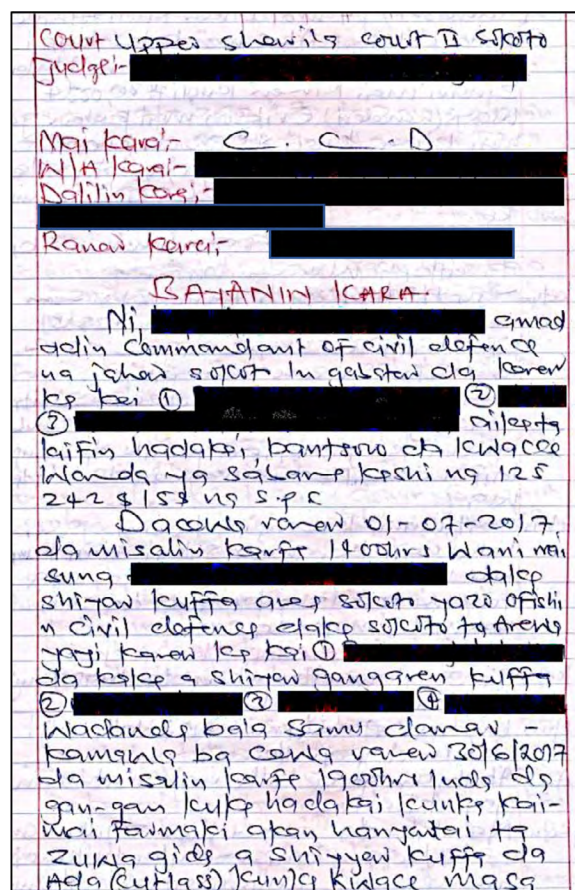 Court Upper sharila court II sokoto
Judge:-
Mai Kara:- C. C. D
W/A Kara:-
Dalilin Kara:-
Ranar Kara:-
BAYANIN KARA.
Ni, amad
adin Commandant of civil defence
na jahar sokoto In gabatar da karar
ke kai ① ②
③ aikata
laifin hadakai, bantsoro da kwace
Wanda ya sabama kashi na 125
242 & 155 na S.P.C
Dacewa ranar 01-07-2017
da misalin karfe 1400hrs Wani mai
suna dake
shiyar kuffa area sokoto yazo ofishi
n civil defence dake sokoto ta Arewa
yayi karar ke kai ①
da kake a shiyar gangaren kuffa
② ③ ④
Wadanda bala samu damar -
kamawa ba cewa ranar 30/6/2017
da misalin karfe 1900hrs Inda da
gan-gan kuka hadakai kunka kai-
mai farmaki akan hanyatai ta
zuwa gida a shiyyar kuffa da
Ada (cutlass) kunka kwace masa